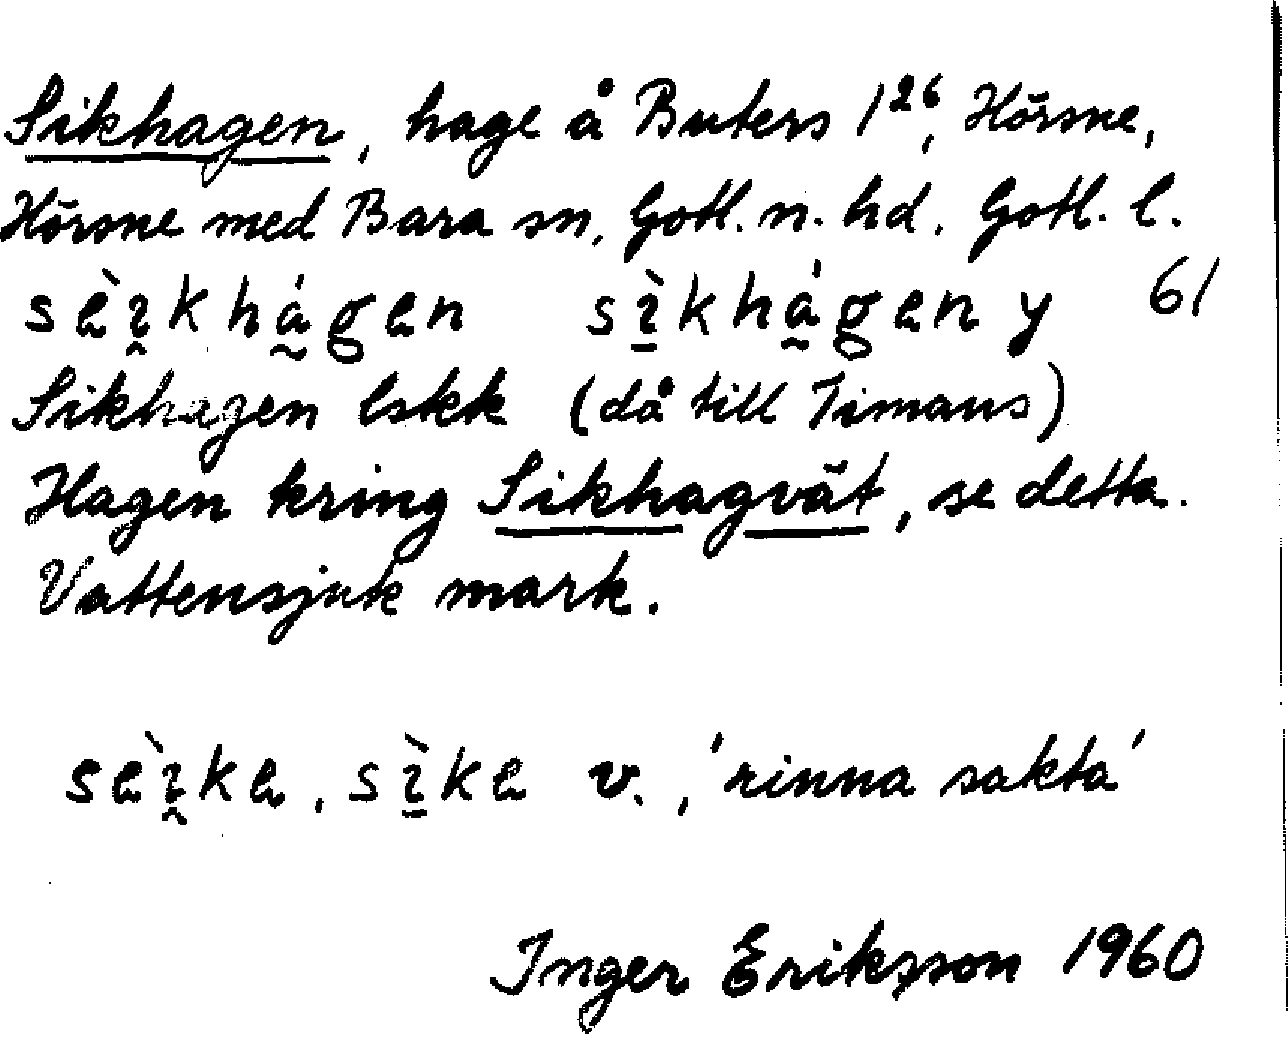 Sikhagen, hage å Buters 1²⁶, Hörsne,
Hörsne med Bara sn, Gotl. n. hd. Gotl. l.
sèɪkhágen sɪ̀khágen y 61
Sikhagen lskk (då till Timans)
Hagen kring Sikhagvät, se detta.
Vattensjuk mark.
sèɪke, sɪ̀ke v., 'rinna sakta'
Inger Eriksson 1960